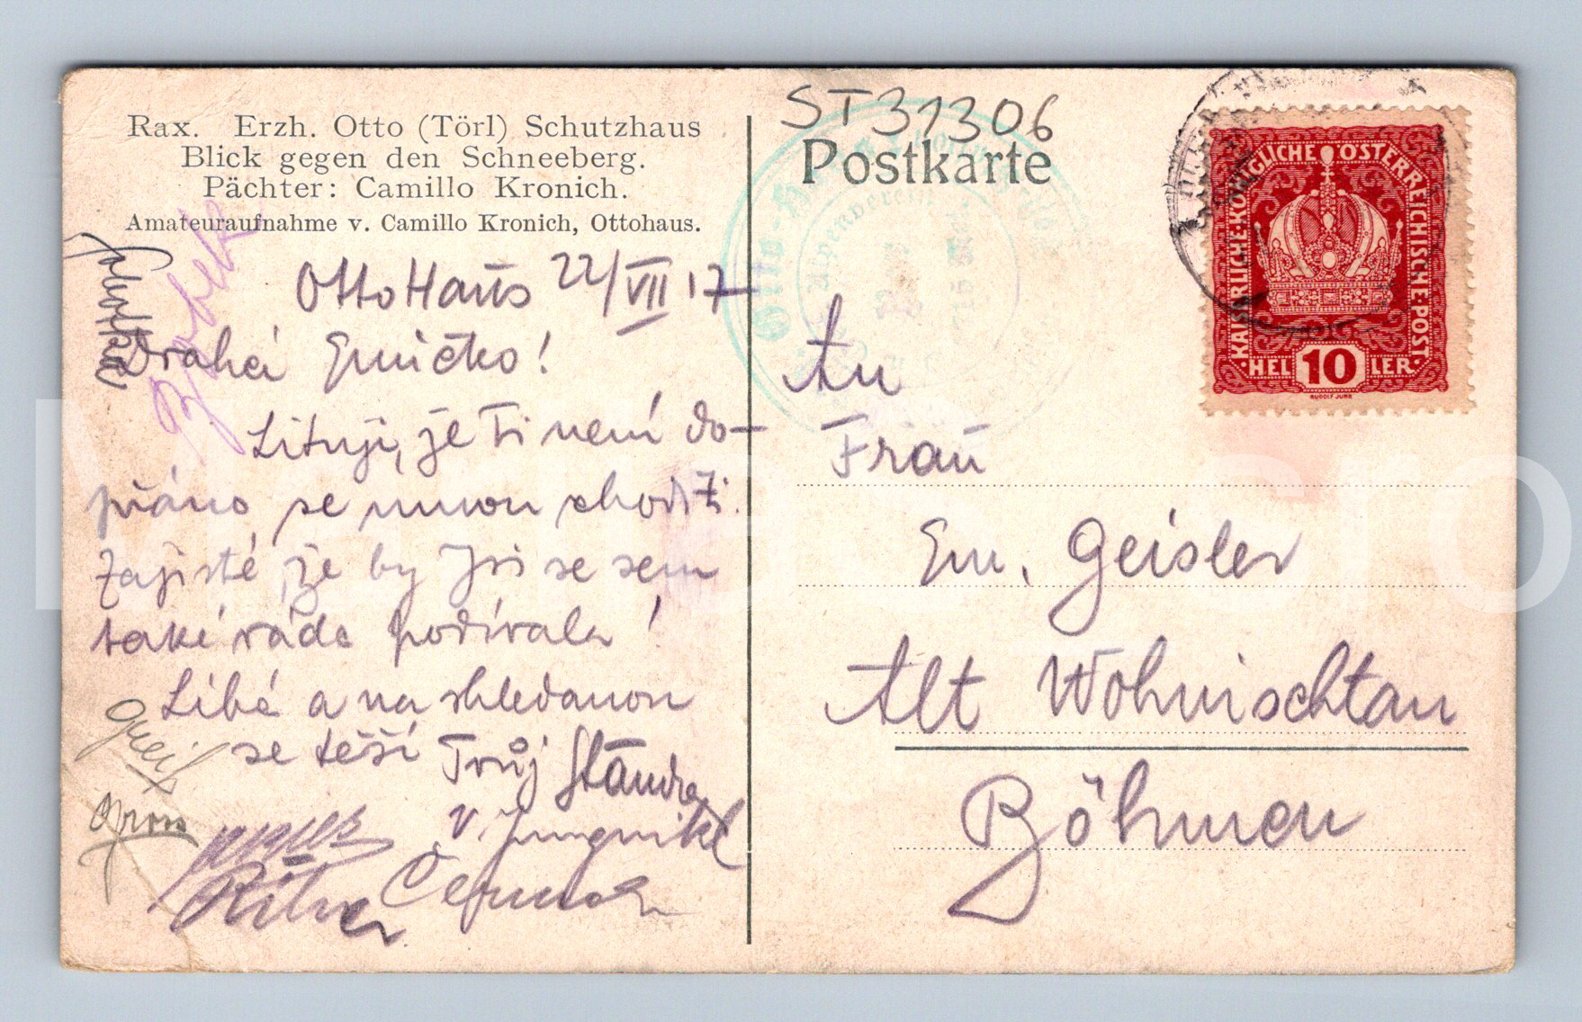 Rax. Erzh. Otto (Törl) Schutzhaus
Blick gegen den Schneeberg.
Pächter: Camillo Kronich.
Amateuraufnahme v. Camillo Kronich, Ottohaus.
Otto Haus 22/VII 17
Drahá Emičko!
Lituji, že Ti není do-
přáno se mnou choditi.
Zajisté, že by Jsi se sem
také ráda podívala!
Líbá a na shledanou
se těší Tvůj Standa
v. Jungwikl
Gross
Ritter
ST31306
Postkarte
An
Frau
Em. Geisler
Alt Wohnischtan
Böhmen
KAISERLICHE·KÖNIGLICHE ÖSTERREICHISCHE·POST·
HEL 10 LER
RUDOLF JUNK
Otto-H
Alpenverein